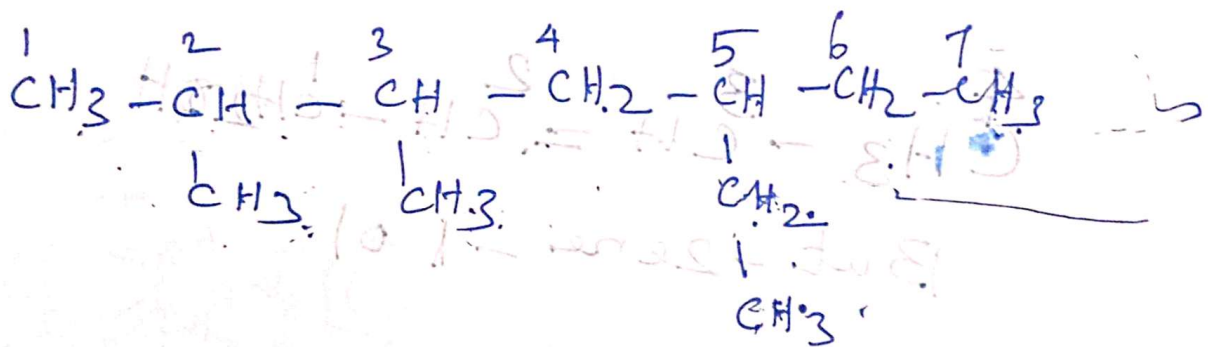 1 2 3 4 5 6 7
CH3 - CH - CH - CH2 - CH - CH2 - CH3
CH3 CH3 CH2
CH3